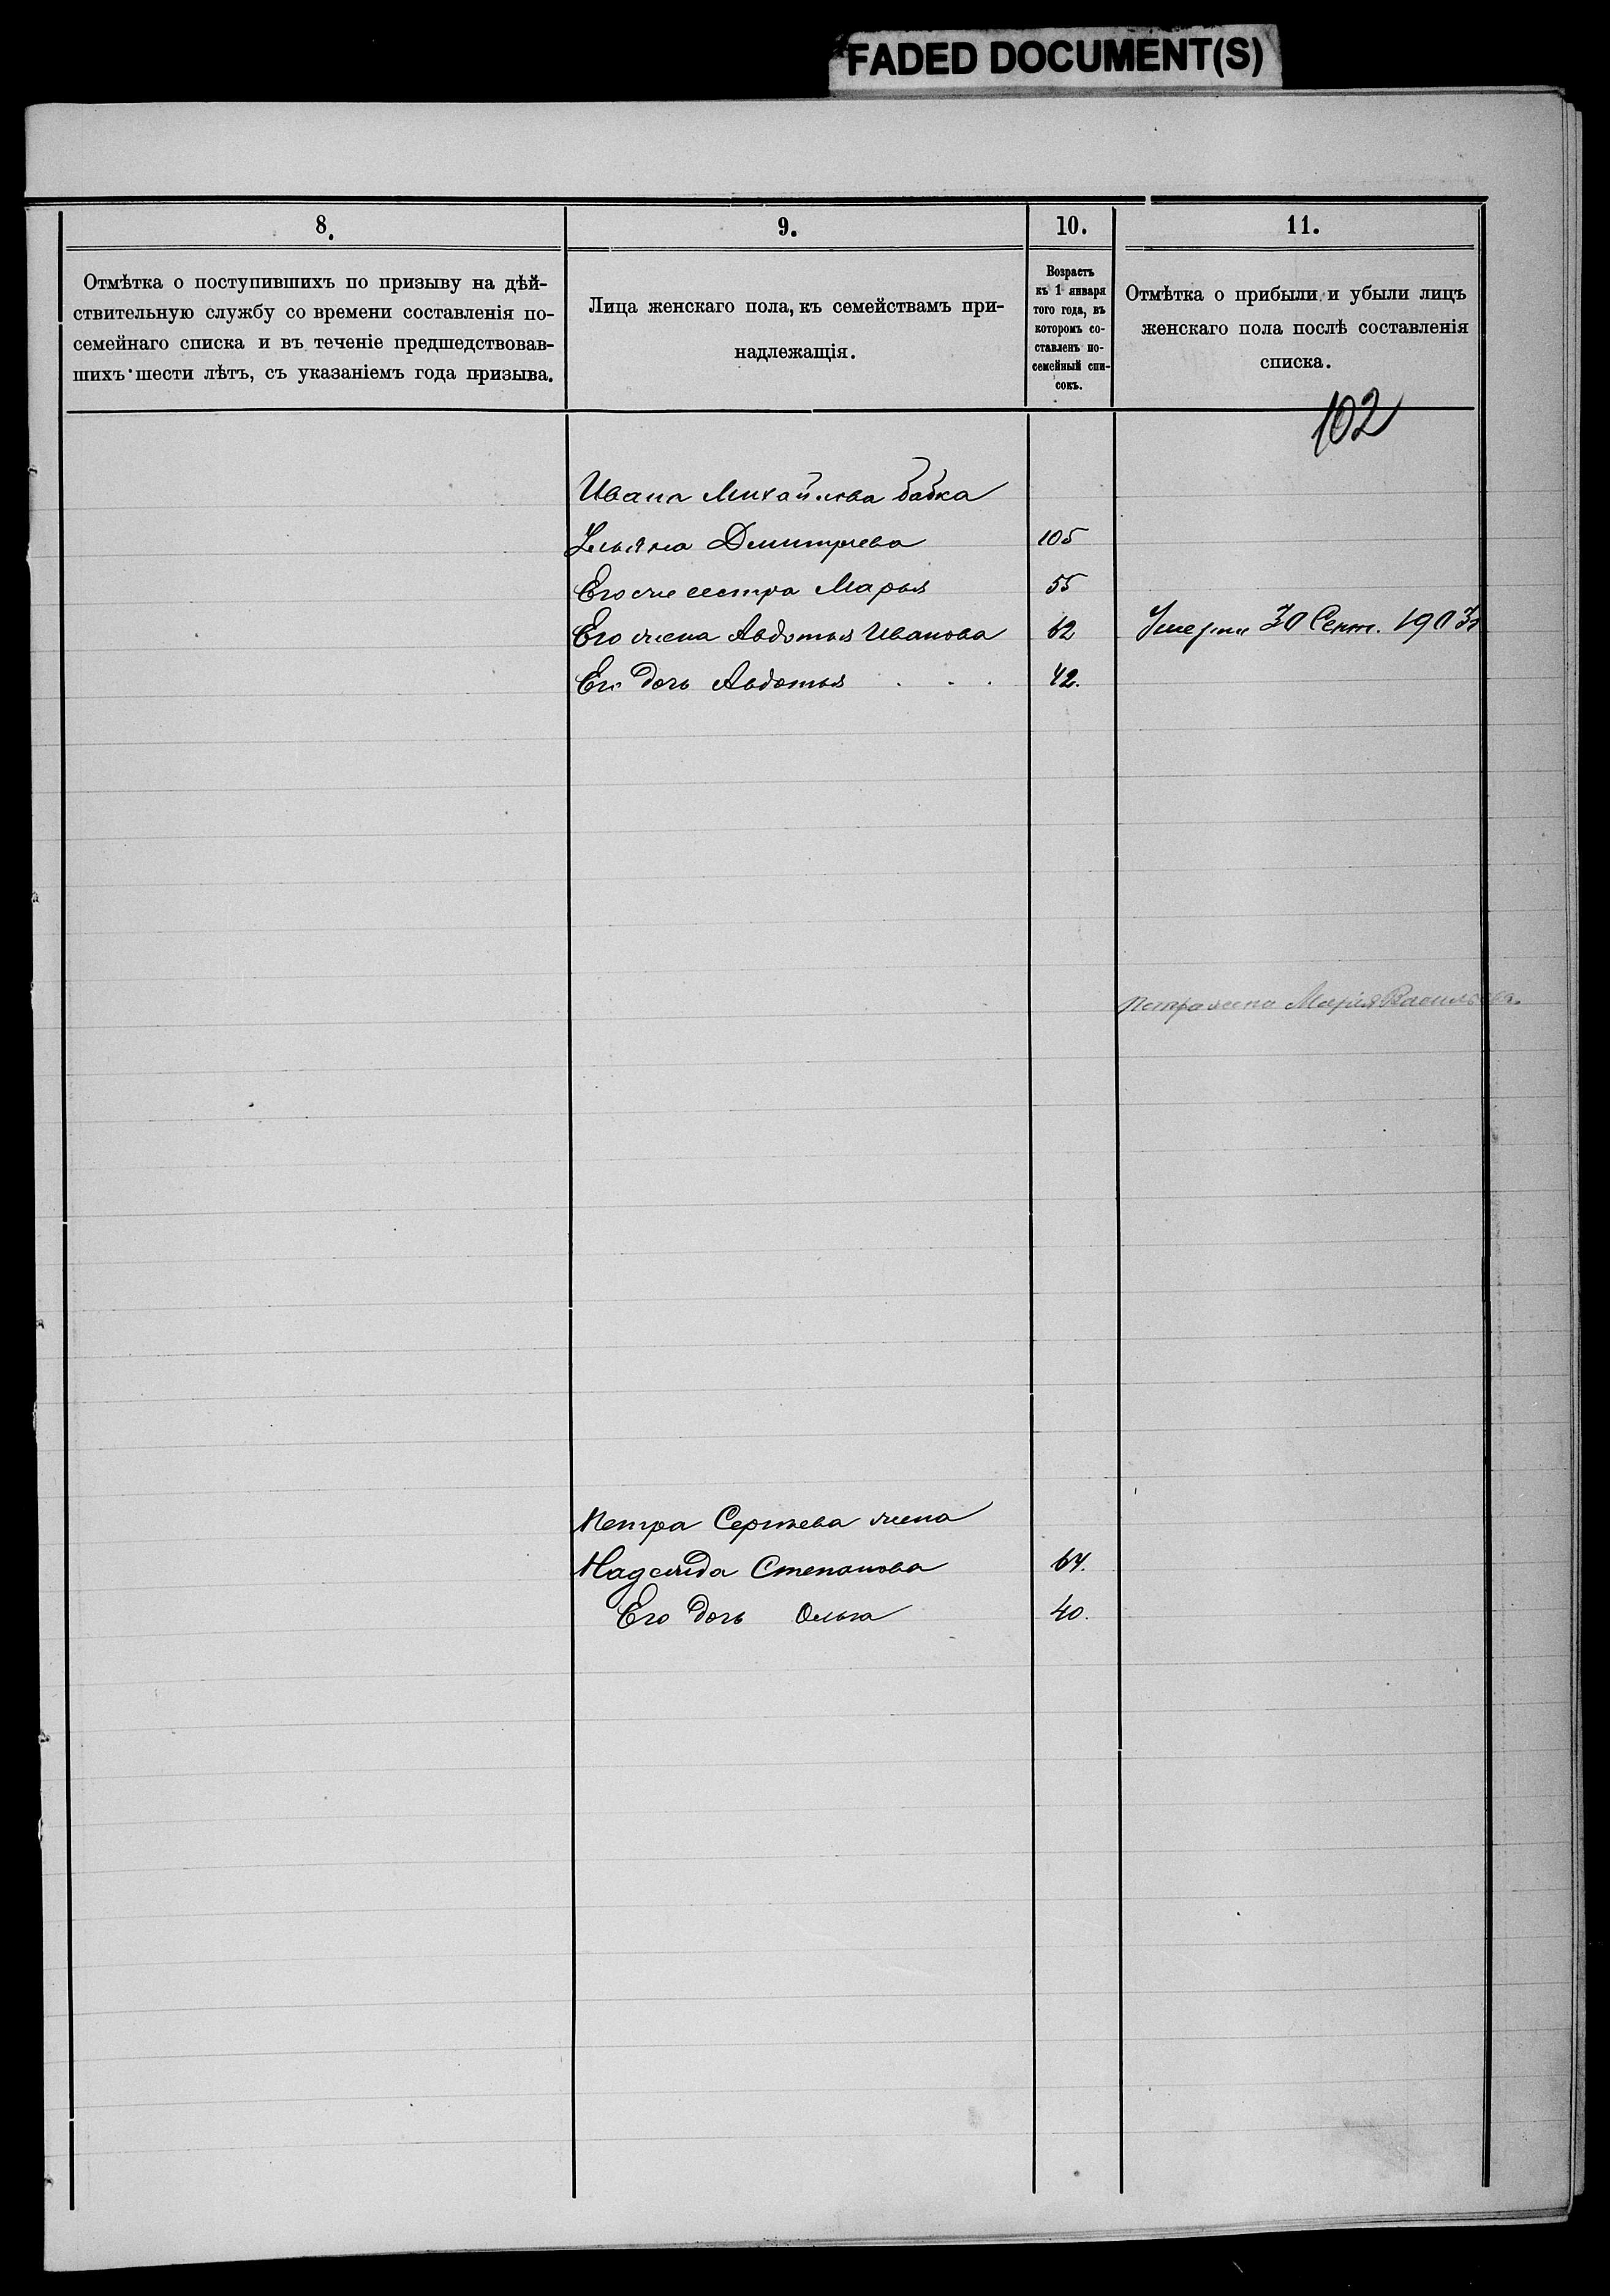 FADED DOCUMENT(S)
8.
9.
10.
11.
Отмѣтка о поступившихъ по призыву на дѣй-
ствительную службу со времени составленія по-
семейнаго списка и въ теченіе предшедствовав-
шихъ шести лѣтъ, съ указаніемъ года призыва.
Лица женскаго пола, къ семействамъ при-
надлежащія.
Возрастъ
къ 1 января
того года, въ
которомъ со-
ставленъ по-
семейный спи-
сокъ.
Отмѣтка о прибыли и убыли лицъ
женскаго пола послѣ составленія
списка.
102
Ивана Михайлова бабка
Ульяна Дмитриева 105
Его же сестра Марья 55
Его жена Авдотья Иванова 62 Умерла 30 Сент. 1903
Его дочь Авдотья . . . 42.
Петра жена Марія Васильева.
Петра Сергѣева жена
Надежда Степанова 64.
Его дочь Ольга 40.